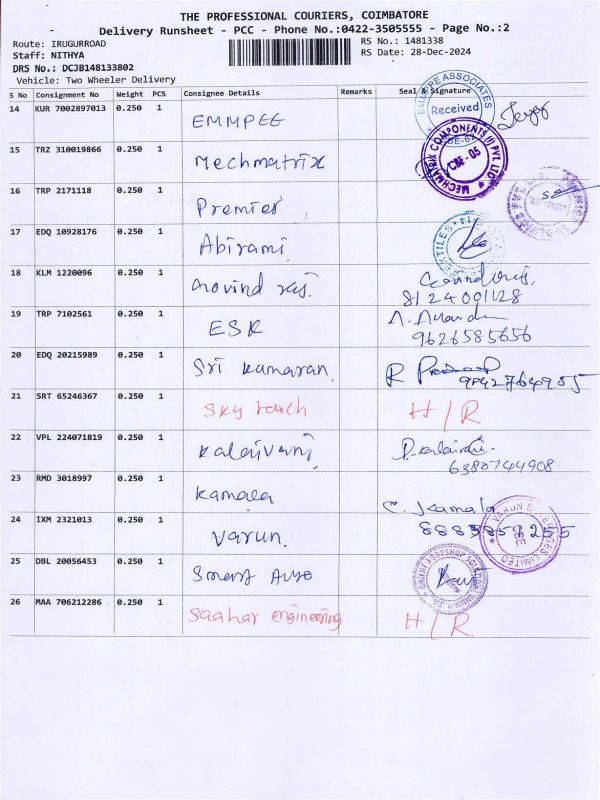 THE PROFESSIONAL COURIERS, COIMBATORE
Delivery Runsheet - PCC - Phone No.:0422-3505555 - Page No.:2
Route: IRUGURROAD RS No.: 1481338
Staff: NITHYA RS Date: 28-Dec-2024
DRS No.: DCJB148133802
Vehicle: Two Wheeler Delivery
S No Consignment No Weight PCS Consignee Details Remarks Seal & Signature
14 KUR 7002897013 0.250 1 EMMPEE EMMPEE ASSOCIATES Received
15 TRZ 310019866 0.250 1 Mechmatrix MECHMATRIX COMPONENTS (I) PVT. LTD. CBE-05
16 TRP 2171118 0.250 1 Premier
17 EDQ 10928176 0.250 1 Abirami
18 KLM 1220096 0.250 1 Arovind raj.
8124001128
19 TRP 7102561 0.250 1 ESK
9626585656
20 EDQ 20215989 0.250 1 Sri Kumaran
21 SRT 65246367 0.250 1 Sky touch H/R
22 VPL 224071819 0.250 1 Kalaivani
6380744908
23 RMD 3018997 0.250 1 Kamala C. Kamala
24 IXM 2321013 0.250 1 Varun.
25 DBL 20056453 0.250 1 Smart Auto
26 MAA 706212286 0.250 1 Saahar engineering H/R